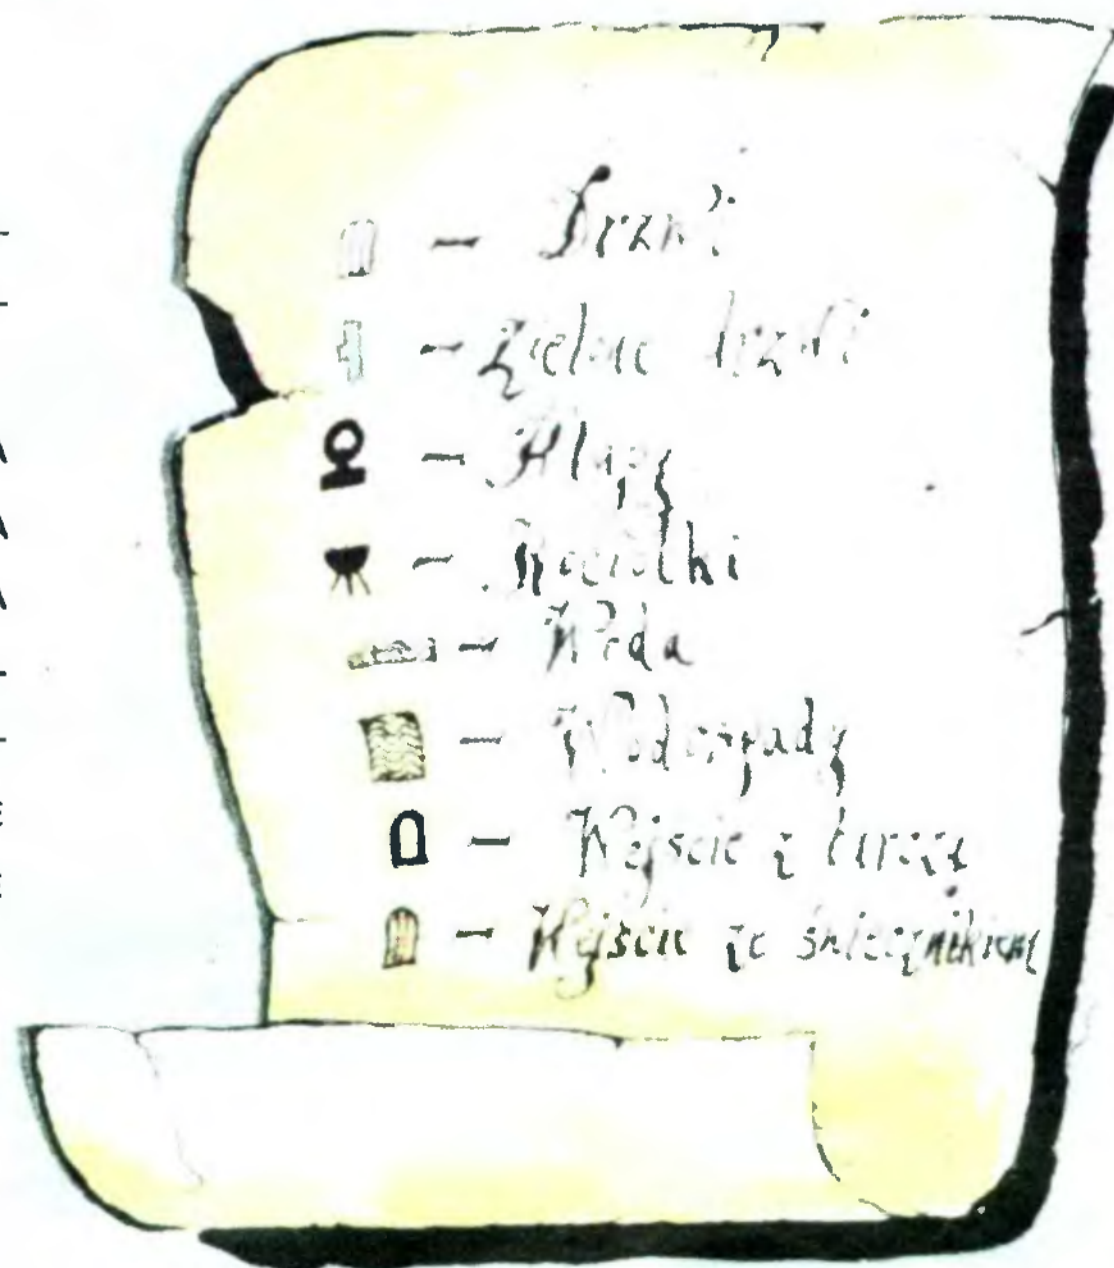 – Drzwi
– Zielone drzwi
– Klapy
– Kociołki
– Woda
– Wodospady
– Wejście z
– Wejście ze świecznikiem